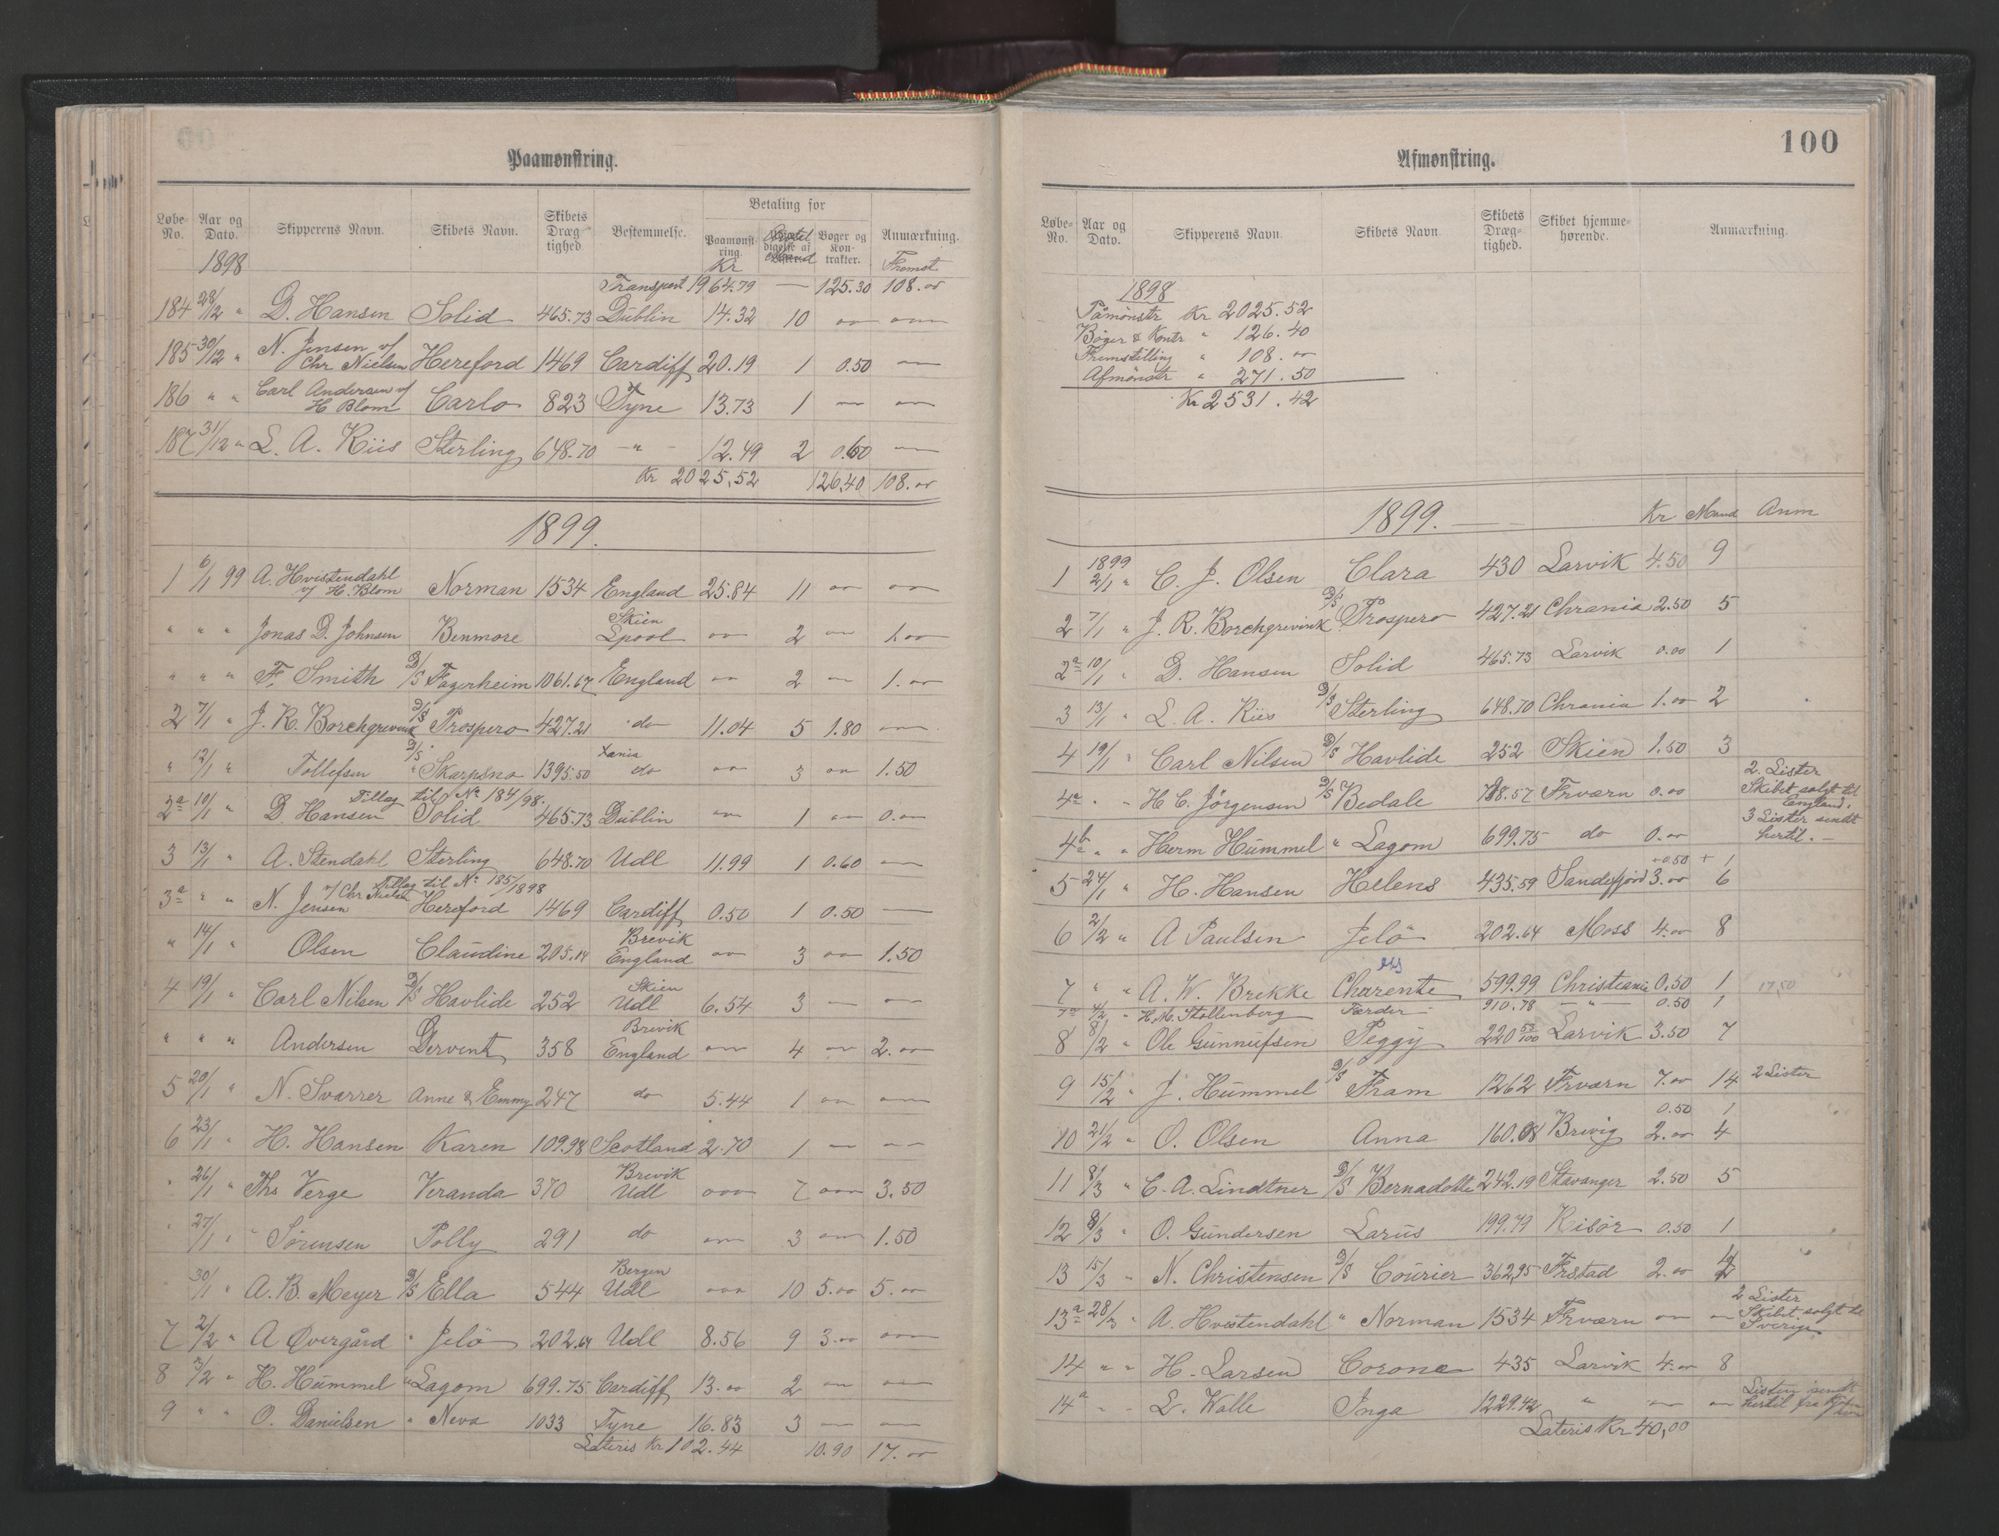 Paamønstring.
Løbe-No. Aar og Dato. Skipperens Navn. Skibets Navn. Skibets Drægtighed. Bestemmelse. Betaling for Paamønstring. Bøger og Kontrakter. Anmærkning.
1898 Kr Fremst
Transport 1964.79 — 125.30 108.00
184 28/12 " D. Hansen Solid 465.73 Dublin 14.32 10
185 30/12 " N. Jensen v/ Chr Nielsen Hereford 1469 Cardiff 20.19 1 0.50 —
186 " " Carl Andersen v/ H Blom Carlo 823 Tyne 13.73 1 — —
187 31/12 " L. A. Kiis Sterling 648.70 — " — 12.49 2 0.60 —
Kr 2025,52 126,40 108.00
1899.
1 6/1 99 A. Hvistendahl v/ H. Blom Norman 1534 England 25.84 11
" " " Jonas D. Johnsen Benmore Skien Lpool 2 1.00
" " " F. Smith D/S Fagerheim 1061.67 England 2 1.00
2 7/1 " J. R. Borchgrevink D/S Prospero 427.21 do 11.04 5 1.80
" 12/1 " Tollefsen D/S Skarpsno 1395.50 Xania do 3 1.50
Tillæg til No 184/98.
2a 10/1 " D. Hansen Solid 465.73 Dublin 1 0.00
3 13/1 " A. Stendahl Sterling 648.70 Udl 11.99 1 0.60 —
Tillæg til No 185/1898
3a " " N. Jensen v/ Chr Nielsen Hereford 1469 Cardiff 0.50 1 0.50 —
" 14/1 " Olsen Claudine 205.14 Brevik England 3 1.50
4 19/1 " Carl Nilsen D/S Havlide 252 Skien Udl 6.54 3 — —
" " " Andersen Dervent 358 Brevik England 4 2.00
5 20/1 " N. Svarrer Anne & Emmy 247 do 5.44 1
6 23/1 " H. Hansen Karen 109.98 Scotland 2.70 1 — —
" 26/1 " Ths Verge Veranda 370 Brevik Udl 7 3.50
" 27/1 " Sørensen Polly 291 do 3 1.50
" 30/1 " A. B. Meyer D/S Ella 544 Bergen Udl 10 5.00 5.00
7 2/2 " A Øvergård " Jelö 202.64 Udl 8.56 9 3.00
8 3/2 " H. Hummel " Lagom 699.75 Cardiff 13.00 2
9 " " O. Danielsen " Neva 1033 Tyne 16.83 3 — —
Lateris Kr 102.44 10.90 17.00
Afmønstring.
100
Løbe-No. Aar og Dato. Skipperens Navn. Skibets Navn Skibets Drægtighed. Skibet hjemmehørende. Anmærkning.
1898
Påmönstr Kr 2025.52
Bøger & Kontr " 126.40
Fremstilling " 108.00
Afmönstr " 271.50
Kr 2531.42
1899. — Kr Mand Anm
1899
1 2/1 " C. J. Olsen Clara 430 Larvik 4.50 9
2 7/1 " J. R. Borchgrevink D/S Prospero 427.21 Chrania 2.50 5
2a 10/1 " D. Hansen Solid 465.73 Larvik 0.00 1
3 13/1 " L. A. Kiis D/S Sterling 648.70 Chrania 1.00 2
4 19/1 " Carl Nilsen D/S Havlide 252 Skien 1.50 3
4a " " H C. Jörgensen D/S Bedale Frværn 0.00 2. Lister Skibet solgt til England.
4b " " Herm Hummel " Lagom 699.75 do 0.00 3 Lister sendt hertil. —
5 24/1 " H. Hansen Helens 435.59 Sandefjord 3.00 + 0.50 6 + 1
6 2/2 " A Paulsen Jelö 202.64 Moss 4.00 8
7 " " A. W. Brekke Charente 599.99 Christiania 0.50 1 17.50
7a 4/2 " H. M. Stollenberg Færder 910.78 — " — 0.50 1
8 8/2 " Ole Gunnufsen Peggy 220 53/100 Larvik 3.50 7
9 15/2 " J. Hummel D/S Fram 1262 Frværn 7.00 14 2 Lister
0.50 1
10 21/2 " O. Olsen Anna 160.08 Brevig 2.00 4
11 8/3 " C. A. Lindtner D/S Bernadotte 242.19 Stavanger 2.50 5
12 8/3 " O. Gundersen Larus 199.79 Risör 0.50 1
13 15/3 " N. Christensen D/S Courier 362,95 Frstad 2.00 4
13a 28/3 " A. Hvistendahl " Norman 1534 Frværn 2 Lister Skibet solgt til Sverige
14 " " H. Larsen Corona 435 Larvik 4.00 8
14a " " L. Walle Inga 1229.42 " Listen sendt hertil fra
Lateris Kr 40,00